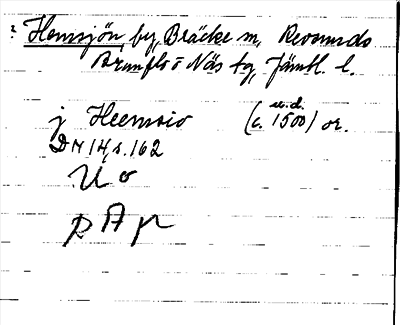 ? Hemsjön, by, Bräcke sn, Revsunds
Brunflo o Näs tg, Jämtl. l.
j Heemsio (c. u.d. 1500) or.
DN 14, s. 162
U o
p A p